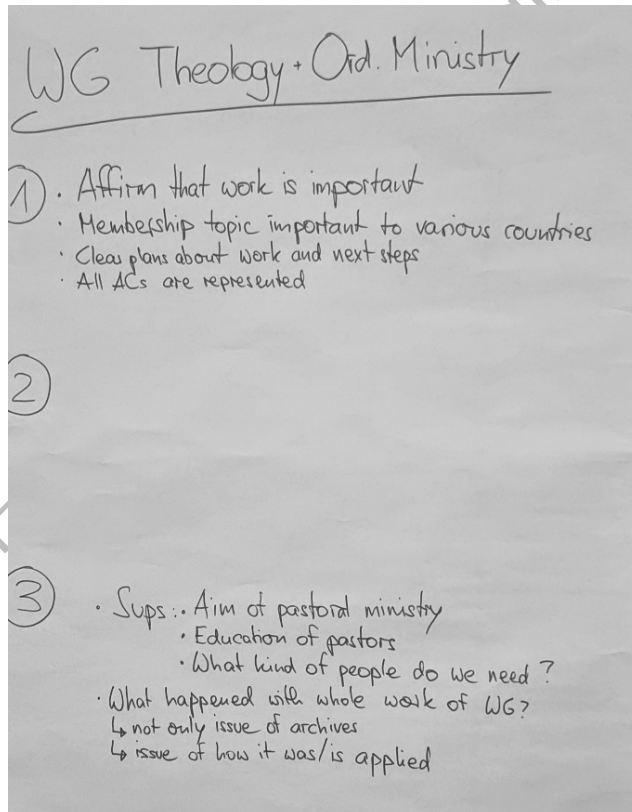 WG Theology + Ord. Ministry
① · Affirm that work is important
· Membership topic important to various countries
· Clear plans about work and next steps
· All ACs are represented
②
③ · Sups: · Aim of pastoral ministry
· Education of pastors
· What kind of people do we need?
· What happened with whole work of WG?
↳ not only issue of archives
↳ issue of how it was/is applied